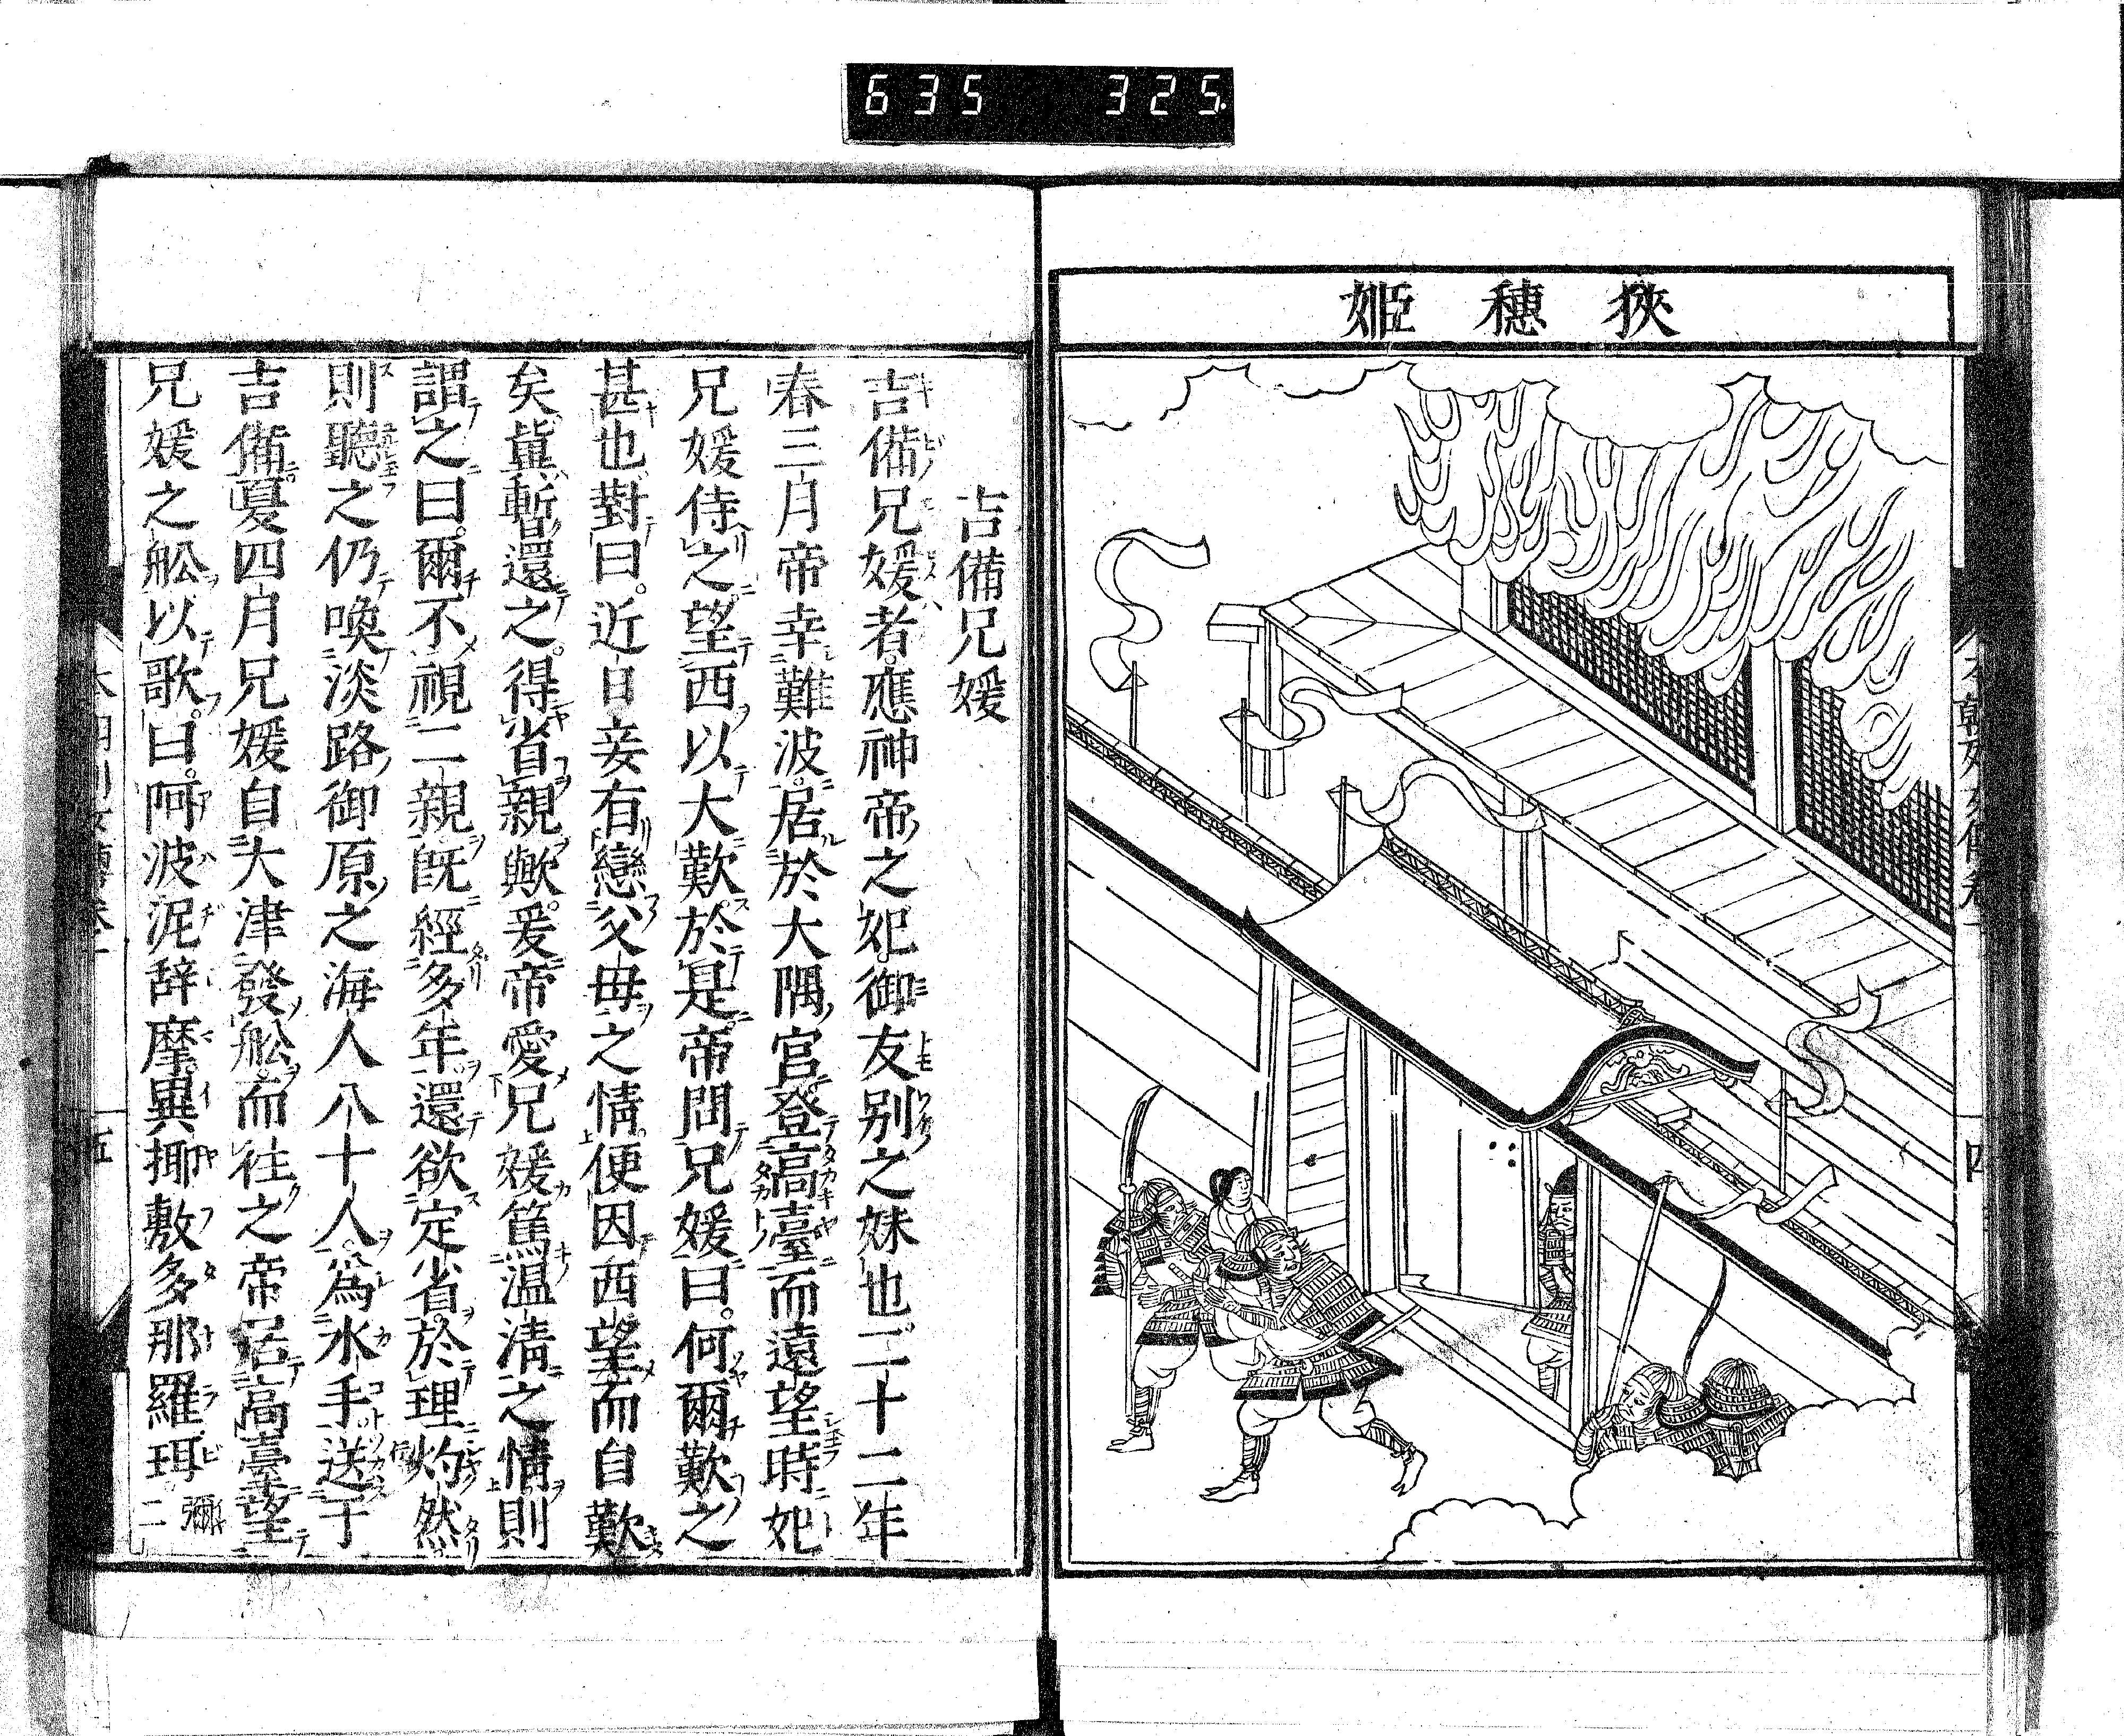 635 325.
狹穗姬
吉備兄媛
吉備兄媛者。應神帝之妃。御友別之妹也。二十二年
春三月帝幸難波。居於大隅宮登高臺而遠望時妃
兄媛侍之望西以大歎。於是帝問兄媛曰。何爾歎之
甚也。對曰。近日妾有戀父母之情。便因西望而自歎
矣。冀暫還之。得省親歟。爰帝愛兄媛篤溫凊之情則
謂之曰。爾不視二親既經多年。還欲定省。於理灼然。
則聽之仍喚淡路御原之海人八十人。爲水手送于
吉備。夏四月兄媛自大津發舩。而往之帝居高臺望
兄媛之舩以歌曰。阿波泥辞摩異揶敷多那羅珥。彌二